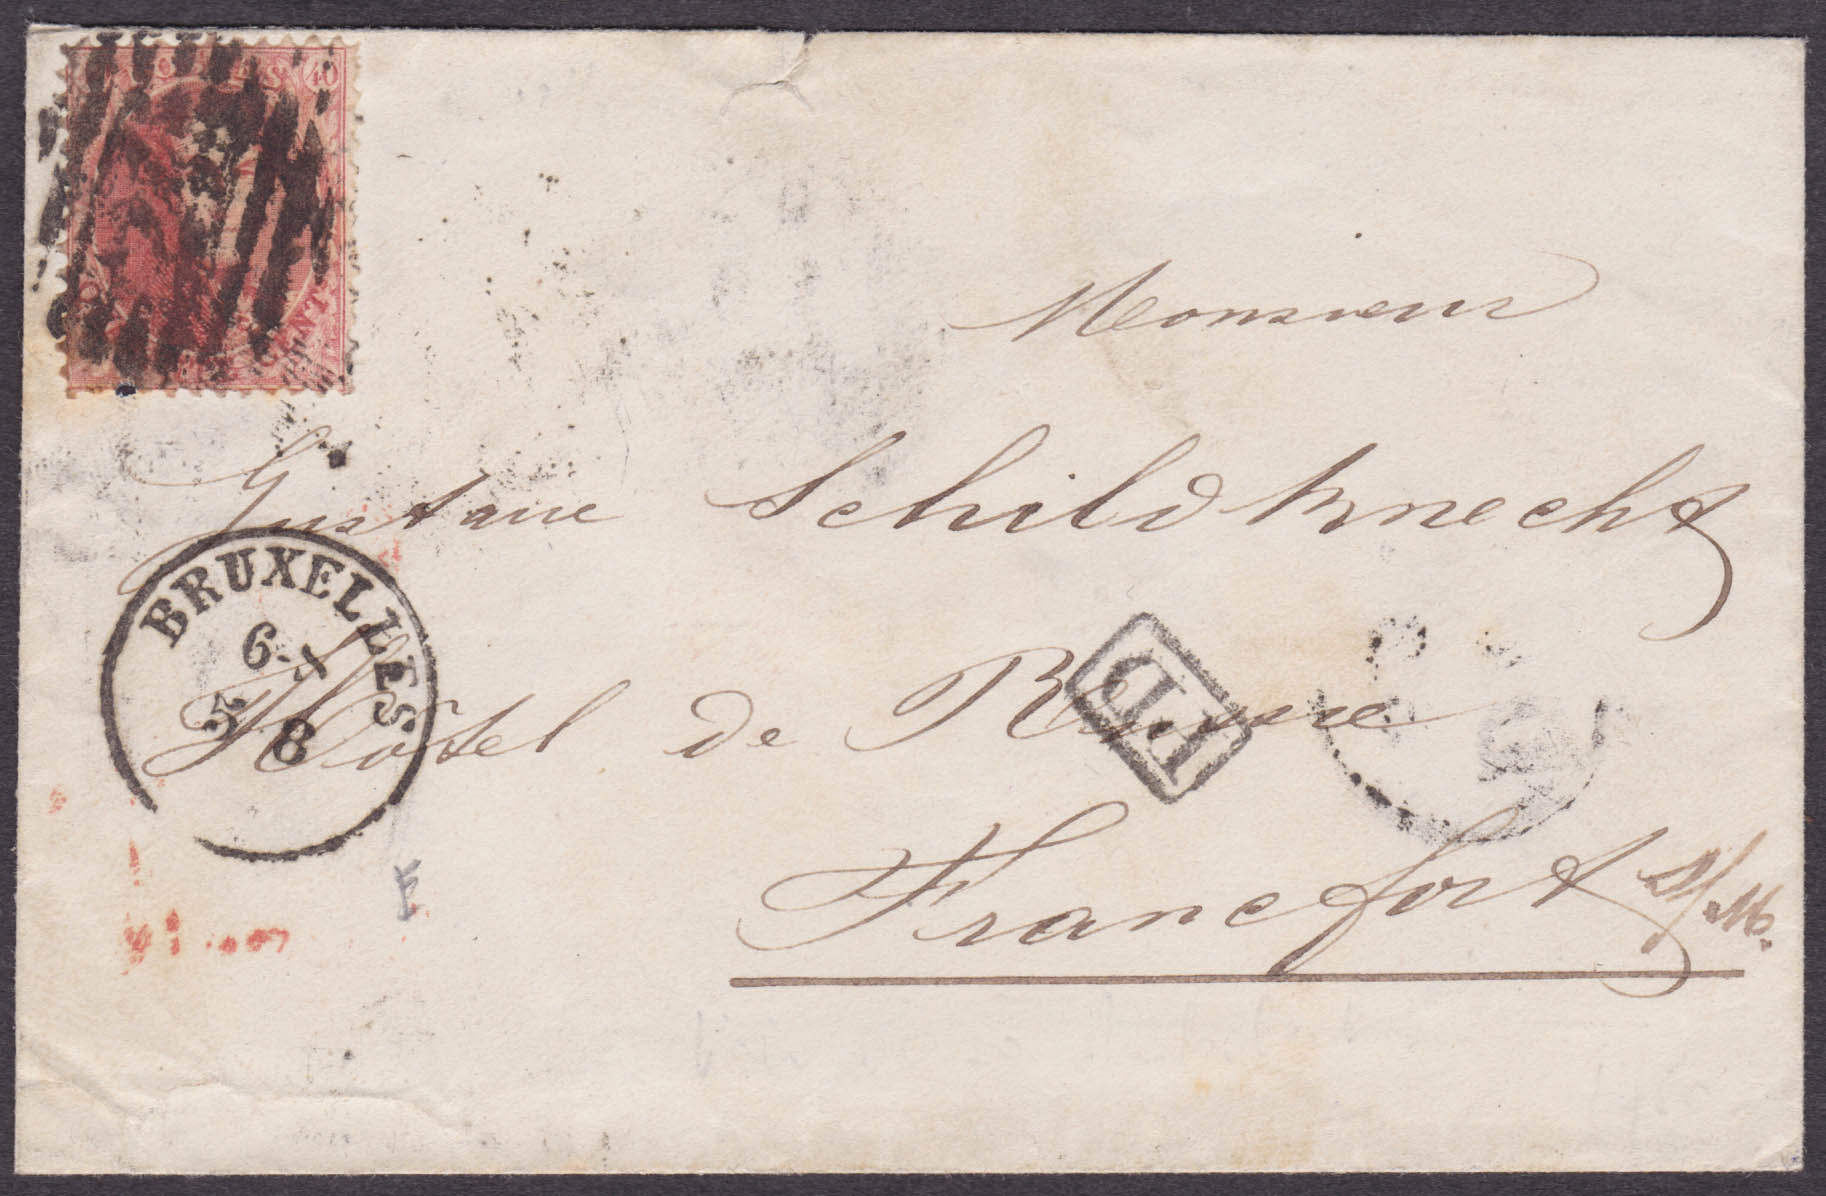 POSTES 40
CENT.
Monsieur
Gustave Schildknecht
BRUXELLES
6-
5 8
Hôtel de Russie
PD
Francfort s/M.
E